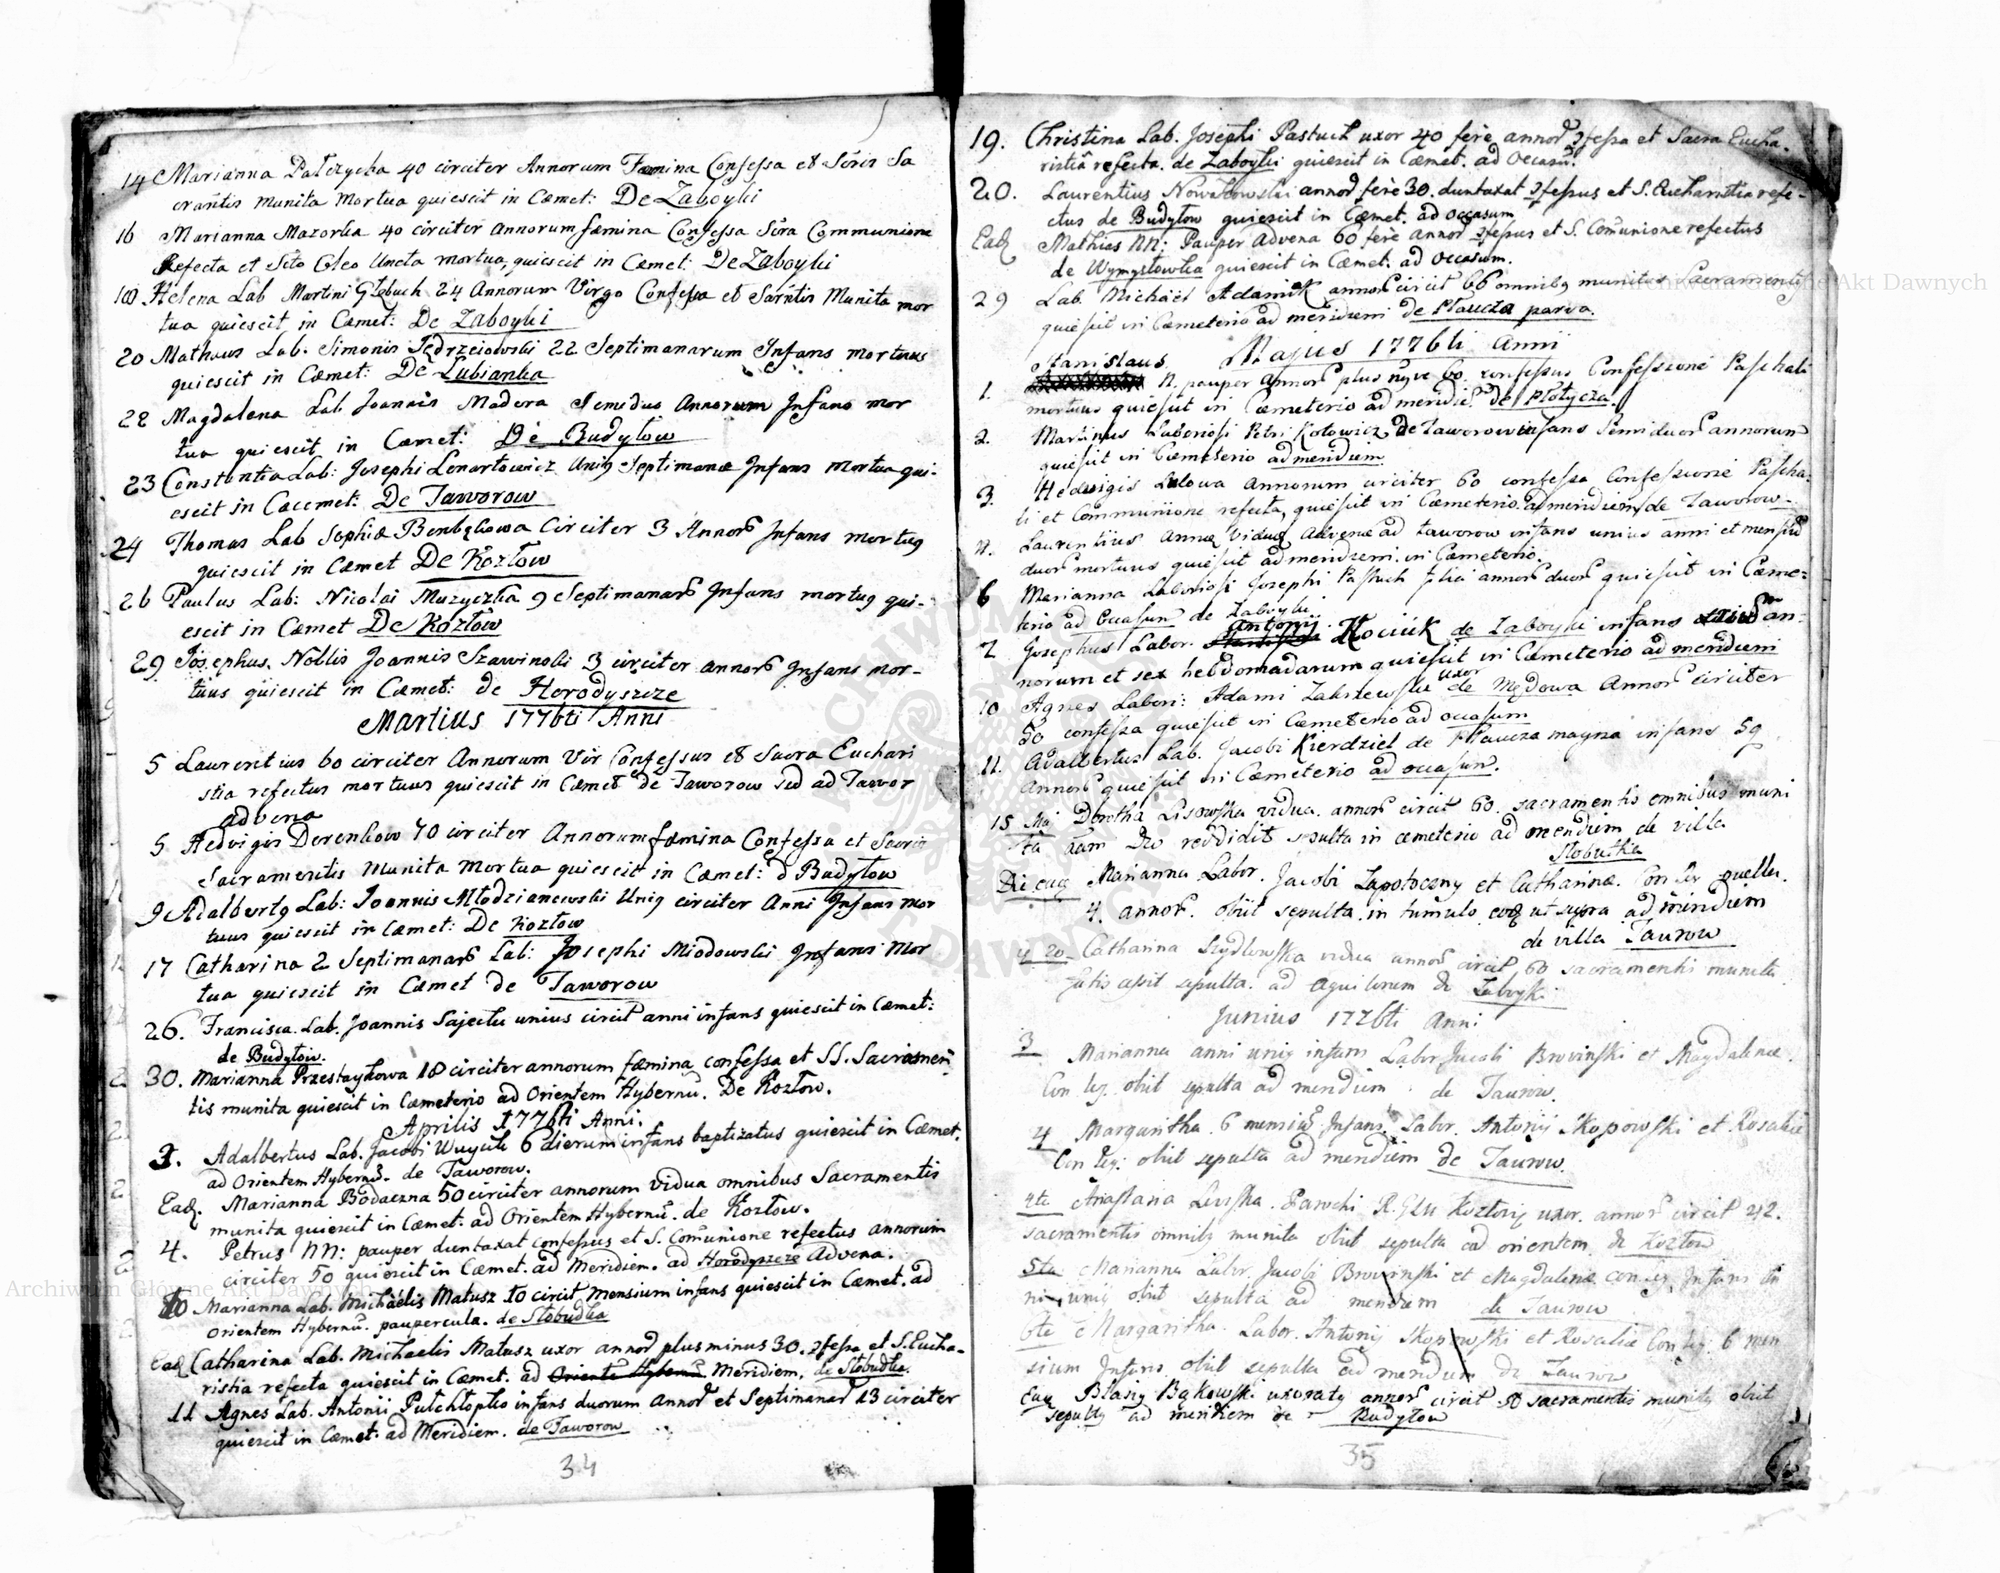 14 Marianna Palczycha 40 circiter Annorum Fæmina Confessa et Scris Sa
cramtis munita mortua quiescit in Cæmet: De Zaboyki
16 Marianna Mazorka 40 circiter annorum fæmina Confessa Scra Communione
Refecta et Scto Oleo Uncta mortua, quiescit in Cæmet: De Zaboyki
Helena Lab Martini 24 Annorum Virgo Confessa et Sacrtis Munita mor
tua quiescit in Cæmet: De Zaboyki
20 Mathæus Lab. Simonis Jędrzeiowski 22 Septimanarum Infans mortuus
quiescit in Cæmet: De Lubianka
22 Magdalena Lab Joannis Madera Annorum Infans mor
tua quiescit in Cæmet: De Budyłow
23 Constantia Lab: Josephi Lenartowicz Uniq Septimanæ Infans Mortua qui-
escit in Cæemet: De Taworow
24 Thomas Lab Sophiæ Circiter 3 Annor Infans mortuq
quiescit in Cæmet De Kozłow
26 Paulus Lab: Nicolai Muzyczka 9 Septimanar Infans mortuq qui-
escit in Cæmet De Kozłow
29 Josephus Nollis Joannis Szawinski 3 circiter annor Infans mor-
tuus quiescit in Cæmet: de Horodyszcze
Martius 1776ti Anni
5 Laurentius 60 circiter Annorum Vir Confessus et Sacra Euchari
stia refectus mortuus quiescit in Cæmet de Taworow sed ad Tawor
advena
5 Hedvigis Derenkow 70 circiter Annorum fæmina Confessa et Sacris
Sacramentis Munita Mortua quiescit in Cæmet: d Budyłow
9 Adalbertq Lab: Joannis Młodzianowski Uniq circiter Anni Infans mor
tuus quiescit in Cæmet: De Kozłow
17 Catharina 2 Septimanar Lab: Josephi Miodowski Infans Mor
tua quiescit in Cæmet de Taworow
26. Francisca Lab. Joannis Sajecki unius circit anni infans quiescit in Cæmet:
de Budyłow.
30. Marianna Przestayłowa 18 circiter annorum fæmina confessa et SS. Sacramen
tis munita quiescit in Cæmeterio ad Orientem Hybernu. De Kozłow.
Aprilis 1776ti Anni.
1. Adalbertus Lab. Jacobi 6 dierum infans baptizatus quiescit in Cæmet.
ad Orientem Hybernu. de Taworow.
Ead. Marianna Bodaczna 50 circiter annorum Vidua omnibus Sacramentis
munita quiescit in Cæmet. ad Orientem Hybernu. de Kozłow.
4. Petrus NN: pauper duntaxat Confessus et S. Comunione refectus annorum
circiter 50 quiescit in Cæmet. ad Meridiem. ad Horodyszcze Advena.
10 Marianna Lab. Michaelis Matusz 10 circit Mensium infans quiescit in Cæmet. ad
Orientem Hybernu. paupercula. de Słobudka
Ead Catharina Lab. Michaelis Matusz uxor annor plus minus 30. 2fessa et S. Eucha-
ristia refecta quiescit in Cæmet. ad Oriente Hybernu Meridiem, de Słobudka.
11 Agnes Lab. Antonii infans duorum annor et Septimanar 13 circiter
quiescit in Cæmet. ad Meridiem. de Taworow
34
19. Christina Lab. Josephi Pastuch uxor 40 fere annor 2fessa et Sacra Eucha-
ristia refecta. de Zaboyki quiescit in Cæmet. ad Occasu.
20. Laurentius Nowakowski annor fere 30. duntaxat 2fessus et S. Eucharistia refe-
ctus de Budyłow quiescit in Cæmet. ad occasum
Ead Mathias NN: Pauper Advena 60 fere annor 2fessus et S. Comunione refectus
de Wymysłowka quiescit in Cæmet. ad Occasum.
29 Lab. Michael Adamek annor circit 66 omnibq munitus Sacramentis
quiescit in Cæmeterio ad meridiem de Płaucza parva.
Majus 1776ti Anni
Stanislaus
1. N. pauper annor plus 60 confessus Confessione Paschali
mortuus quiescit in Cæmeterio ad meridie de Płotycza.
2. Martinus Laboriosi Petri Kotowicz de Taworow infans semiduor annorum
quiescit in Cæmeterio ad meridiem
3. Hedwigis Lulowa Annorum circiter 60 confessa Confessione Pascha-
li et Communione refecta, quiescit in Cæmeterio ad meridiem de Taworow
4. Laurentius Annæ Viduæ Advenæ ad Taworow infans unius anni et mensiu
duor mortuus quiescit ad meridiem in Cæmeterio.
6 Marianna Laboriosi Josephi Pastuch filia annor duor quiescit in Cæme-
terio ad occasum de Zaboyki
Antonij
7 Josephus Labor. Kociuk de Zaboyki infans an-
norum et sex hebdomadarum quiescit in Cæmeterio ad meridiem
uxor
10 Agnes Labori: Adami Zakrzewski de Mędowa Annor circiter
50 confessa quiescit in Cæmeterio ad occasum
11. Adalbertus Lab. Jacobi Kierdziel de Płaucza magna infans 5q
Annor quiescit in Cæmeterio ad occasum.
15 Maj Dorotha Lisowska vidua annor circit 60. sacramentis omnibus muni
ta aam Deo reddidit sepulta in cæmeterio ad meridiem de villa
Słobutka
Die eaq Marianna Labor. Jacobi Zapotoczny et Catharinæ Con ler puella
4. annor. obiit sepulta in tumulo eoq ut supra ad meridiem
de villa Taurow
20 Catharina Szydłowska vidua annor circit 60 sacramentis munita
fatis cessit sepulta ad aquilonem de Zaboyki
Junius 1776ti Anni
3 Marianna anni uniq infans Labor Jacobi Browinski et Magdalenæ
Con leg. obiit sepulta ad meridiem de Taurow.
4 Margaritha 6 mensiu Infans Labor. Antonij Skopowski et Rosaliæ
Con leg: obiit sepulta ad meridiem de Taurow.
4ta Anastasia Parochi R. Głu Kozłoviq uxor. annor circit 42.
sacramentis omnibq munita obiit sepulta ad orientem de Kozłow
5ta Marianna Labor. Jacobi Browinski et Magdalenæ con leg Infans An
ni uniq obiit sepulta ad meridiem de Taurow
6te Margaritha Labor. Antonij Skopowski et Rosaliæ Con leg: 6 men
sium Infans obiit sepulta ad meridiem de Taurow
Eaq Blasiq Bąkowski uxoratq annor circit 50 sacramentis munitq obiit
sepultq ad meridiem de Budyłow
35
Archiwum Główne Akt Dawnych